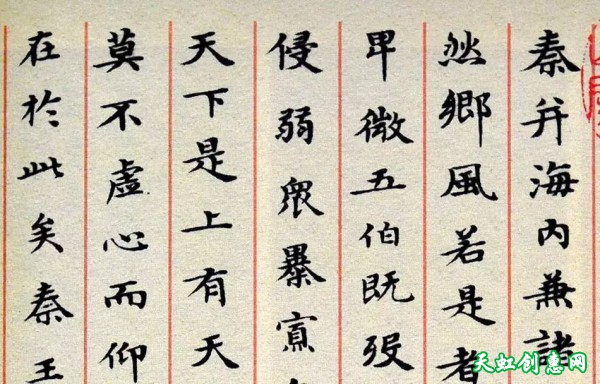 秦并海内兼諸
然鄉風若是者
卑微五伯既殁
侵弱衆暴寡
天下是上有天
莫不虛心而仰
在於此矣秦王
天虹创意网